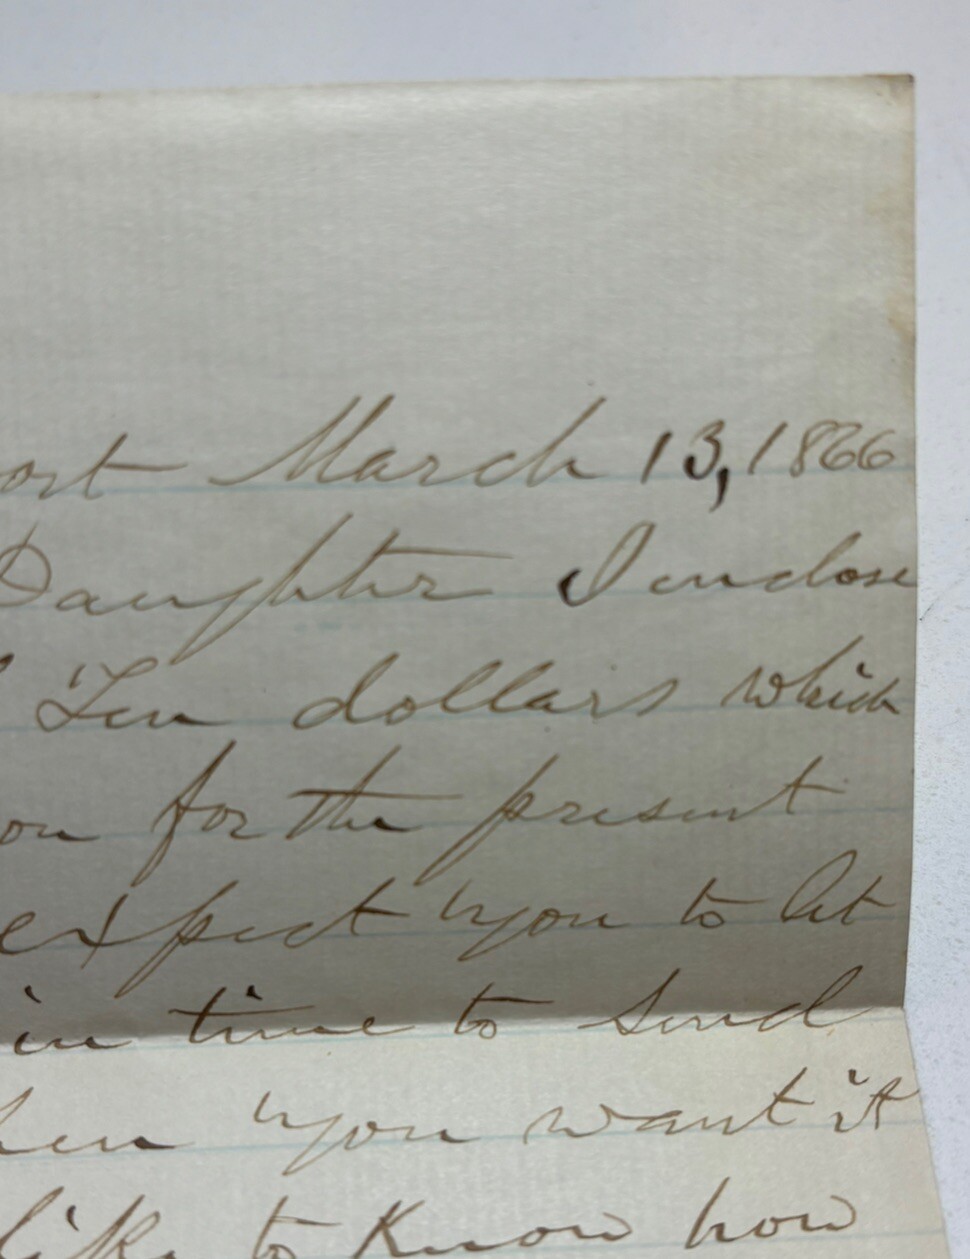 ort March 13, 1866
Daughter I enclose
Ten dollars which
for the present
expect you to let
in time to send
hen you want it
like to know how